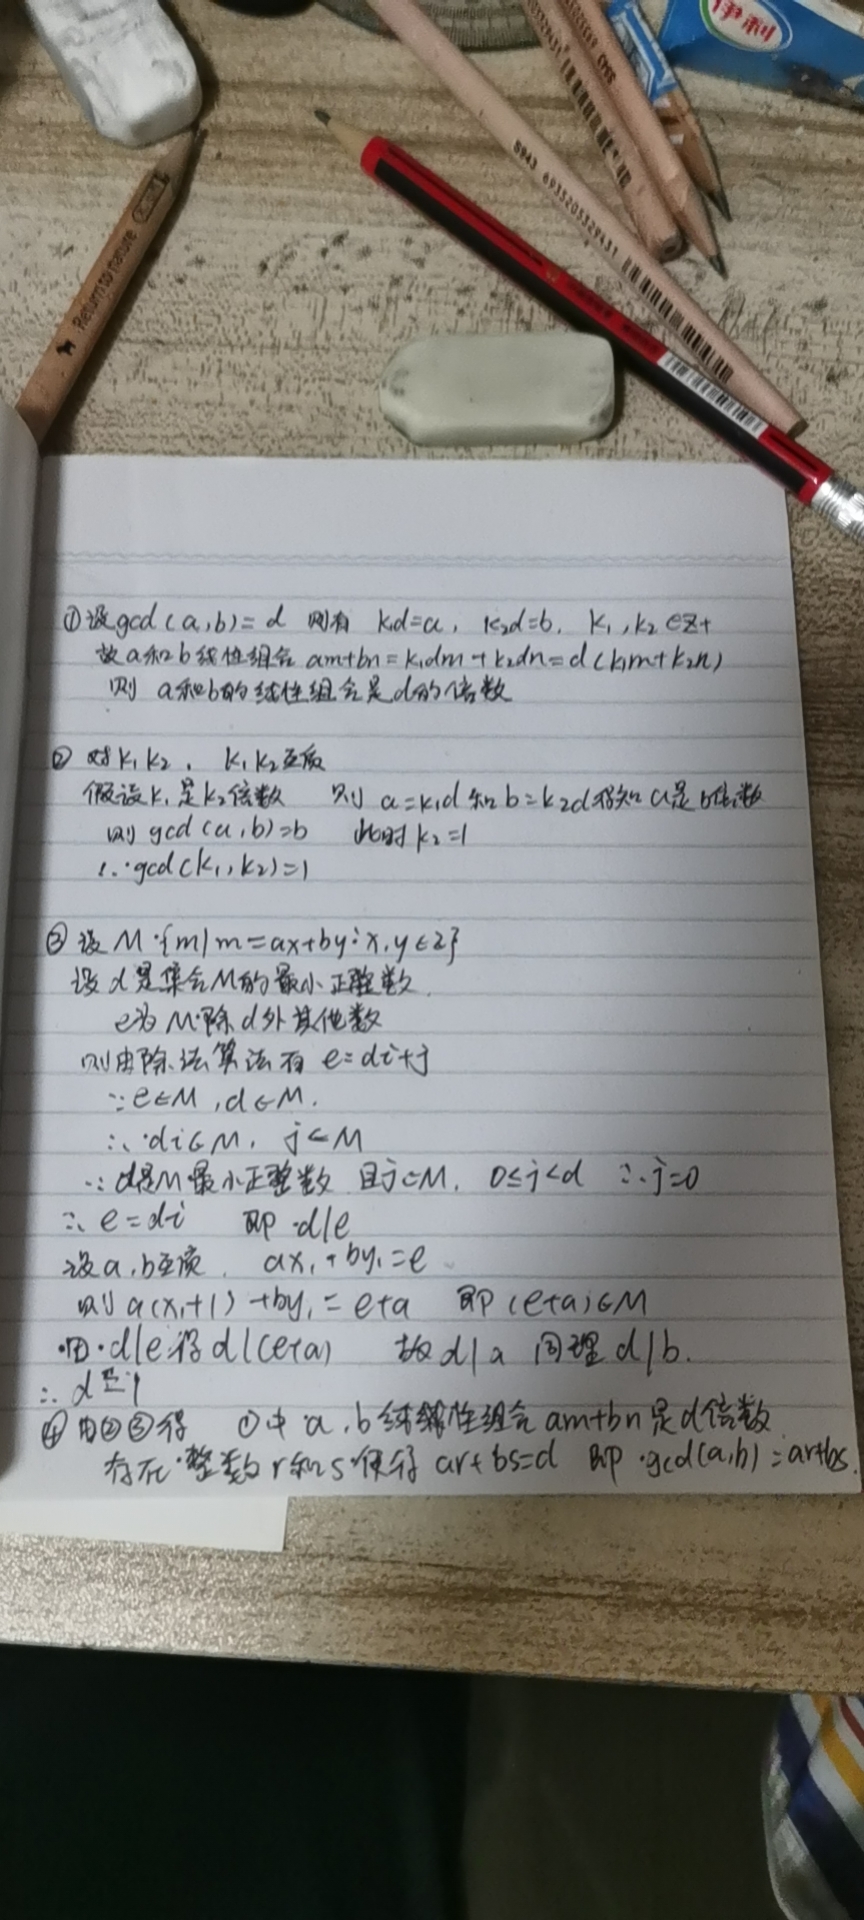 伊利
Return to nature
5943 6935205329431
①设gcd(a,b)=d 则有 k₁d=a, k₂d=b, k₁,k₂∈Z+
故a和b线性组合 am+bn=k₁dm+k₂dn=d(k₁m+k₂n)
则 a和b的线性组合是d的倍数
② 对k₁k₂, k₁k₂互质
假设k₁是k₂倍数 则 a=k₁d和b=k₂d得知a是b倍数
则 gcd(a,b)=b 此时k₂=1
∴gcd(k₁,k₂)=1
③ 设M:{m|m=ax+by:x,y∈Z}
设d是集合M的最小正整数
e为M除d外其他数
则由除法算法有 e=di+j
∵e∈M,d∈M.
∴di∈M, j∈M
∵d是M最小正整数 且j∈M, 0≤j<d ∴j=0
∴e=di 即d|e
设a,b互质, ax₁+by₁=e
则a(x₁+1)+by₁=e+a 即(e+a)∈M
由d|e得d|(e+a) 故d|a 同理d|b.
∴d=1
④由②③得 ①中a,b线性组合am+bn是d倍数
存在整数r和s使得 ar+bs=d 即gcd(a,b)=ar+bs.